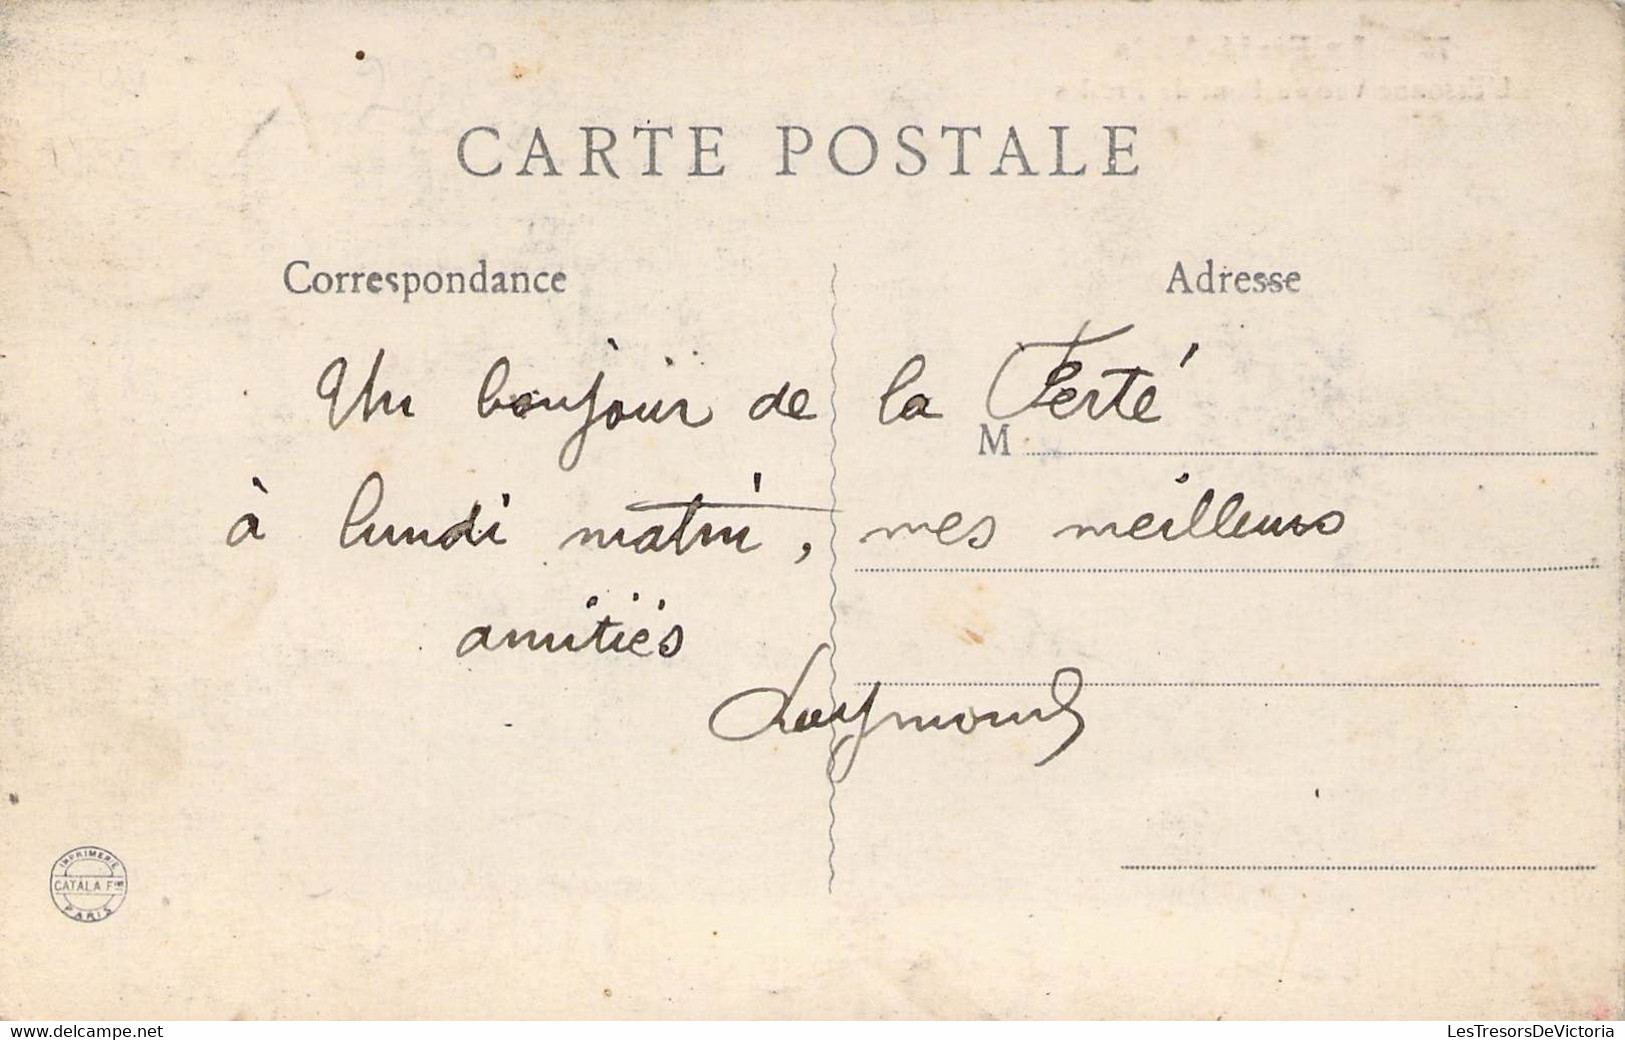 CARTE POSTALE
Correspondance
Adresse
Un bonjour de la Ferté
M
à lundi matin, mes meilleurs
amitiés
Raymond
IMPRIMERIE
CATALA Fres
PARIS
delcampe.net
LesTresorsDeVictoria